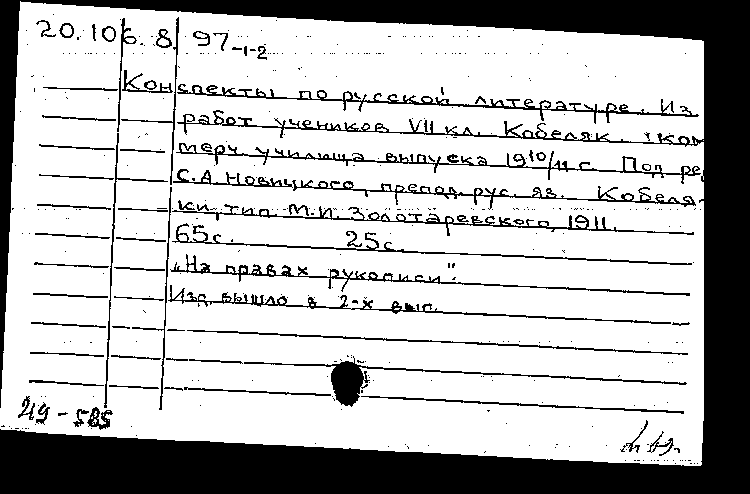 20.106.8.97-1-2
Конспекты по русской литературе. Из
работ учеников VII кл. Кобеляк. ком
мерч. училища выпуска 1910/11 г. Под ре
С.А. Новицкого, препод. рус. яз. Кобеля-
ки, тип. М.И. Золотаревского, 1911.
65с. 25с.
„На правах рукописи".
Изд. вышло в 2-х вып.
49-585